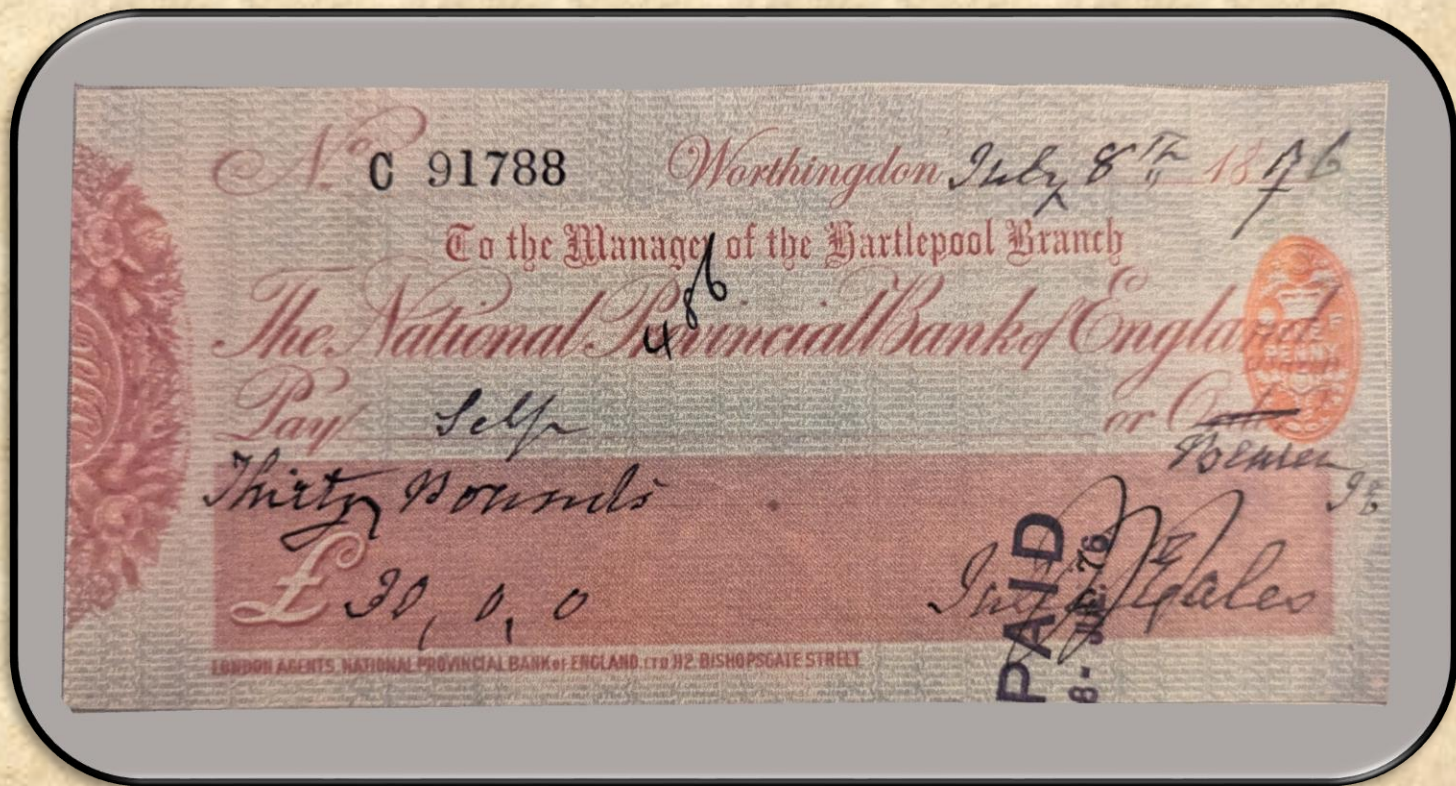 No. C 91788 Worthingdon July 8th 1876
To the Manager of the Hartlepool Branch
The National Provincial Bank of England
486
Pay Self or Order
Bearer
Thirty Pounds
£ 30, 0, 0
PAID
8 - JUL. 76
LONDON AGENTS NATIONAL PROVINCIAL BANK OF ENGLAND LTD 112 BISHOPSGATE STREET
ONE PENNY